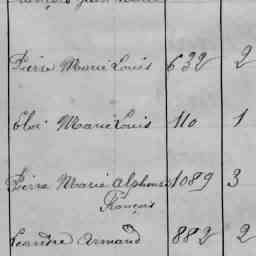 Pierre Marie Louis 632 2
Eloi Marie Louis 110 1
Pierre Marie Alphonse 1089 3
François
Leandre Armand 882 2